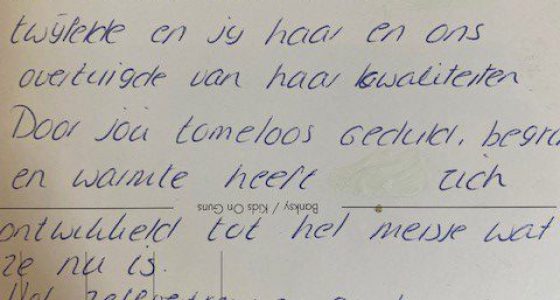 twijfelde en jij haar en ons
overtuigde van haar kwaliteiten
Door jou tomeloos geduld, begr
en warmte heeft zich
Banksy / Kids On Guns
ontwikkeld tot het meisje wat
ze nu is.